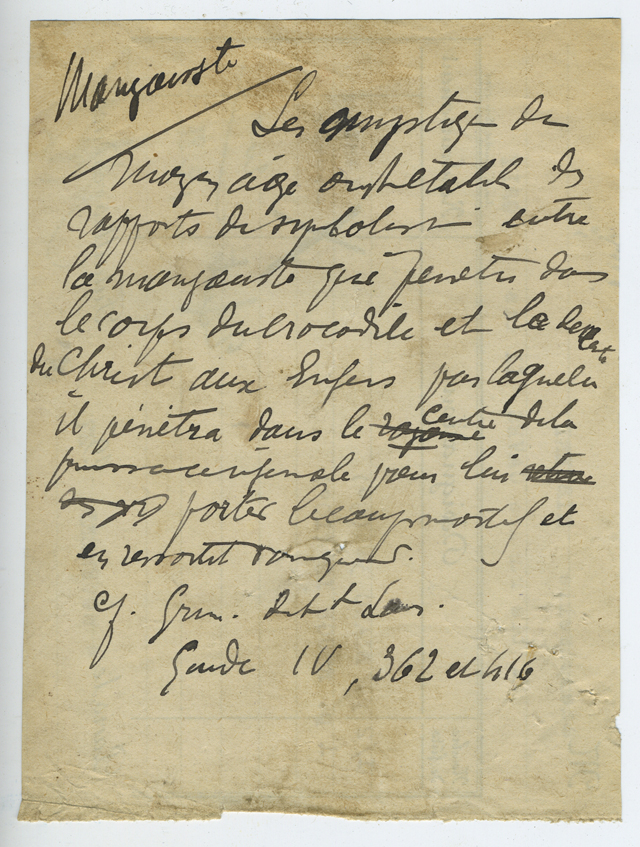 Mangouste
Les mystiques du
Moyen âge ont établi des
rapports de symbolisme entre
la mangouste qui pénètre dans
le corps du crocodile et la descente
du Christ aux Enfers par laquelle
il pénétra dans le royaume centre de la
puissance infernale pour lui
porter le coup mortel et
en ressortit vainqueur.
cf.
Guide IV, 362 et 416